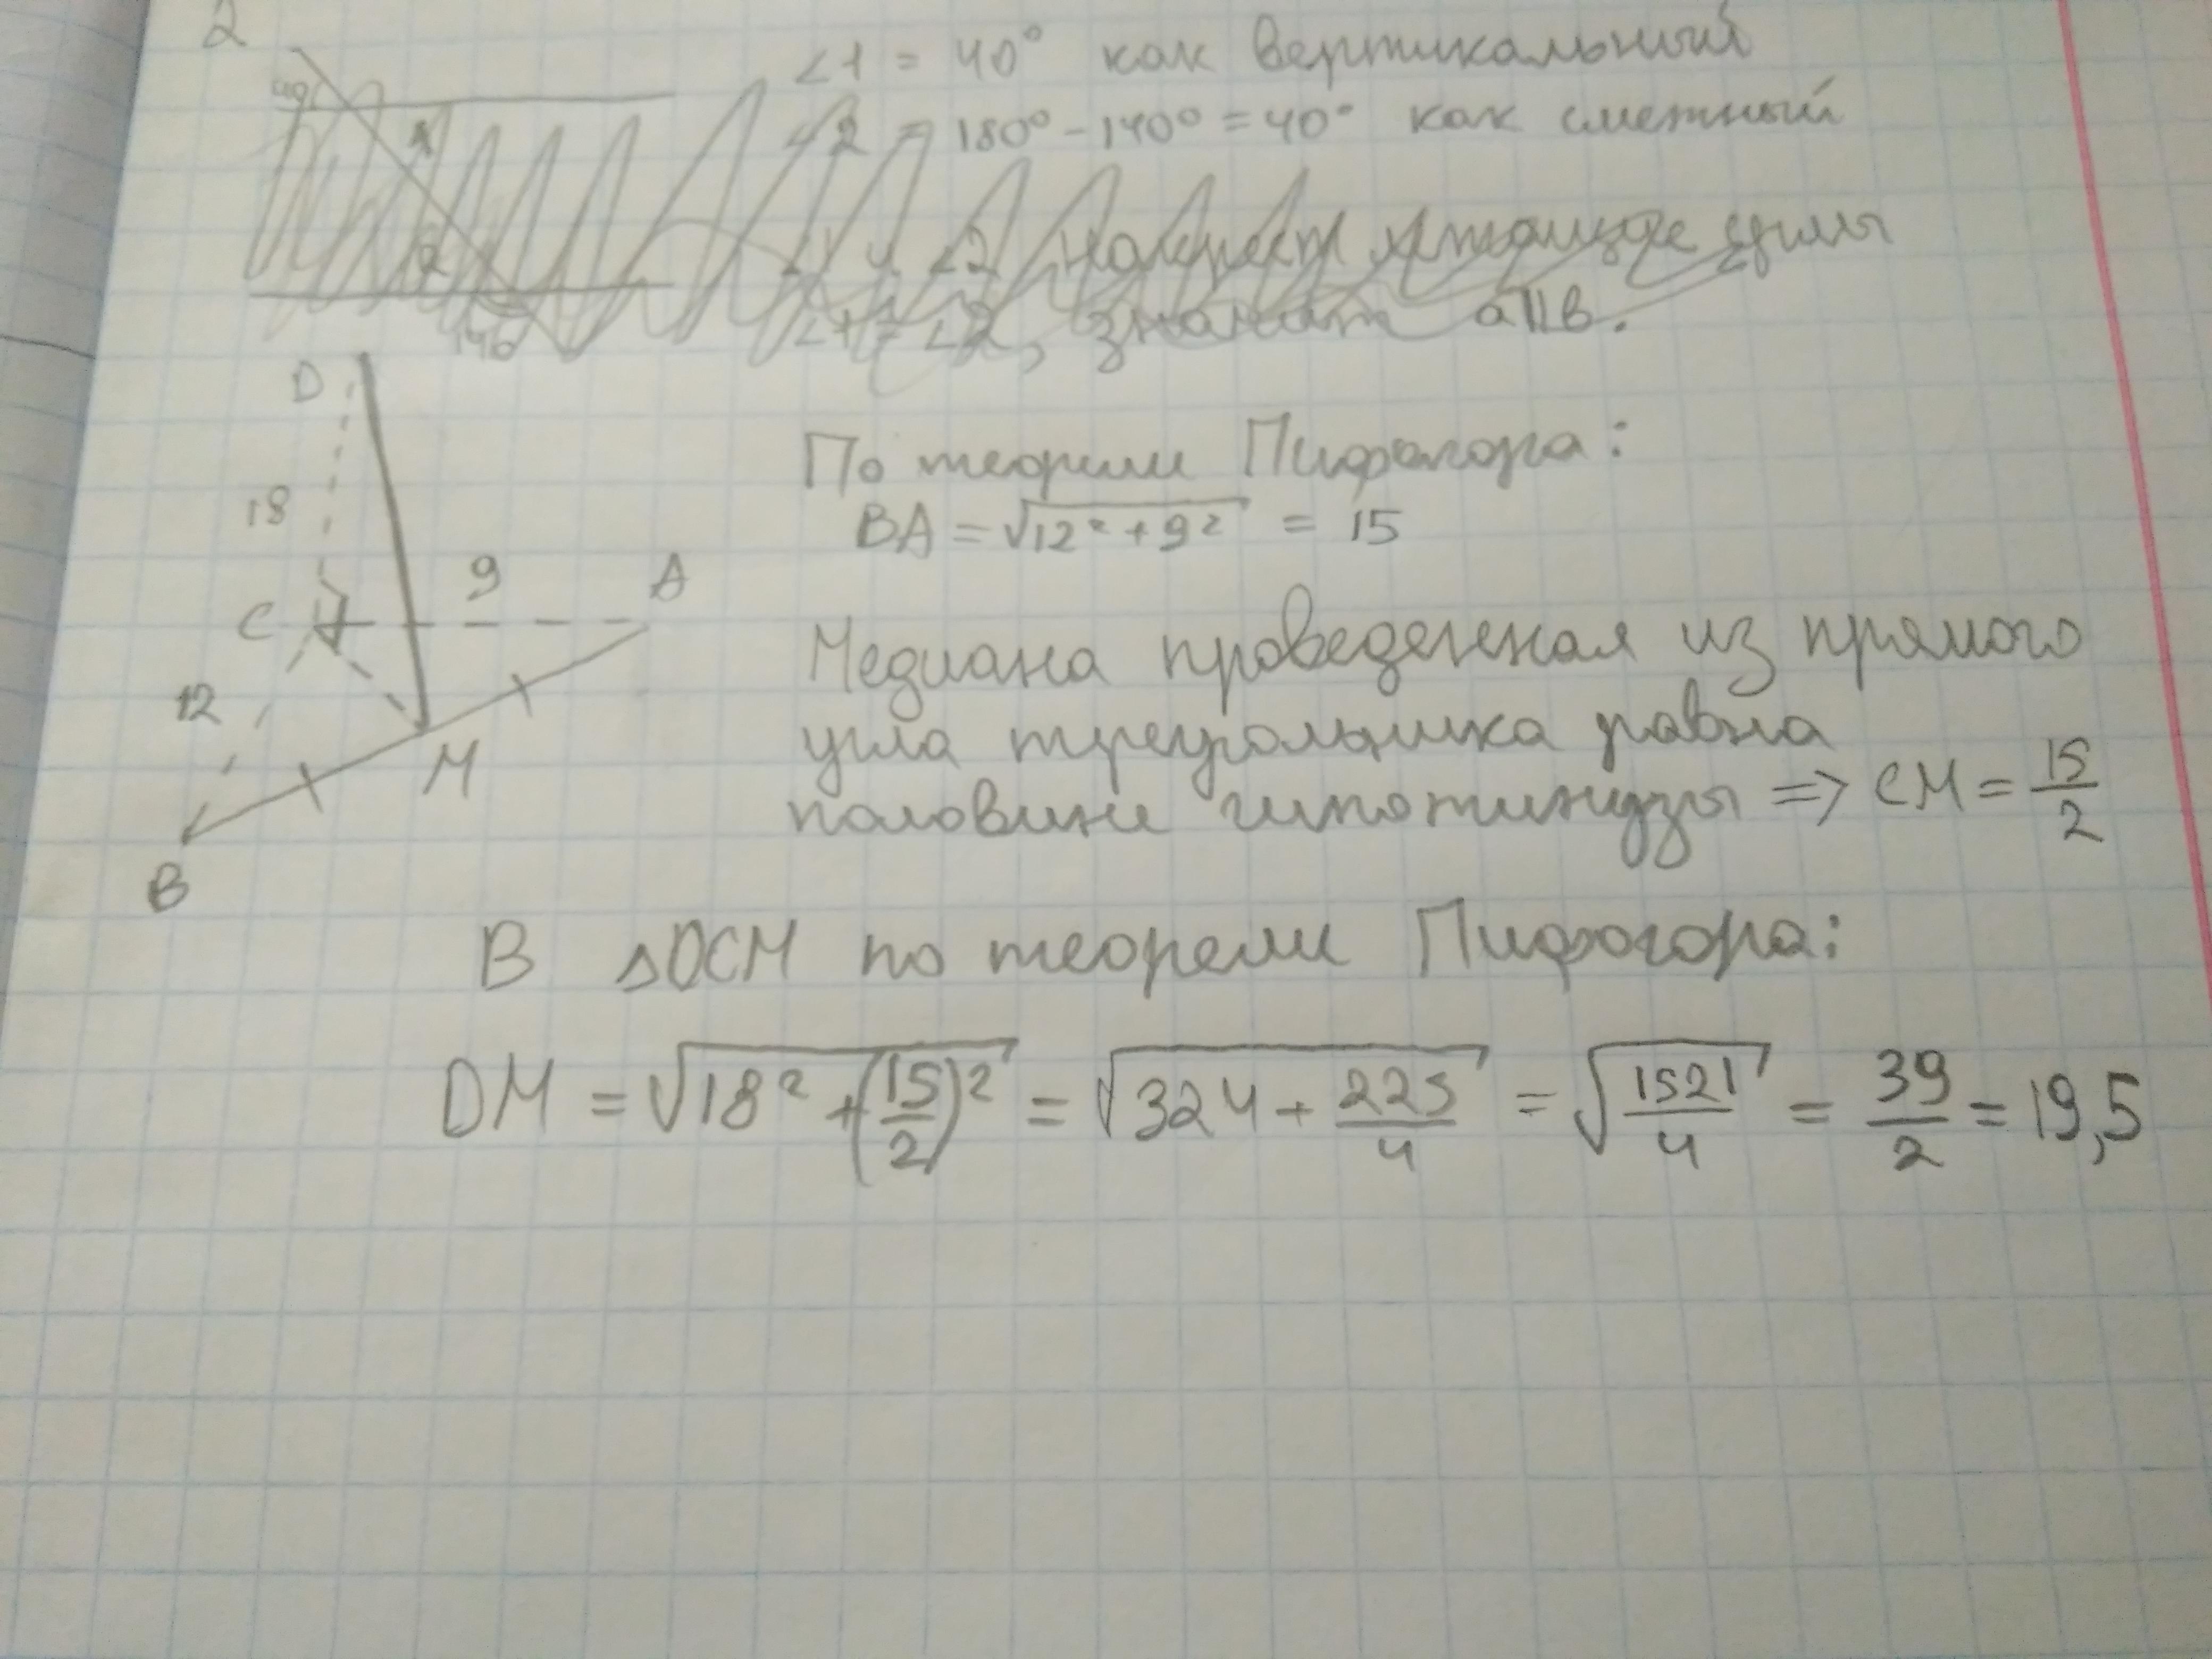 2
∠1 = 40° как вертикальный
∠2 = 180° - 140° = 40° как смежный
∠1 и ∠2 накрест лежащие углы
∠1 = ∠2, значит a||b.
40
1
2
140
D
18
C
9
A
12
M
B
По теореме Пифагора:
BA = √12² + 9² = 15
Медиана проведенная из прямого
угла треугольника равна
половине гипотинузы => CM = 15/2
В △DCM по теореме Пифогора:
DM = √18² + (15/2)² = √324 + 225/4 = √1521/4 = 39/2 = 19,5